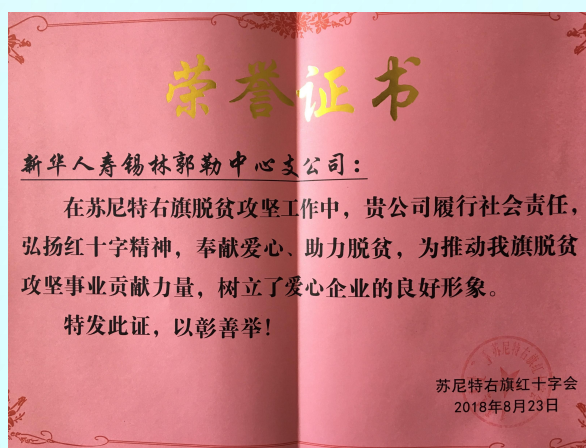 荣誉证书
新华人寿锡林郭勒中心支公司：
在苏尼特右旗脱贫攻坚工作中，贵公司履行社会责任，
弘扬红十字精神，奉献爱心、助力脱贫，为推动我旗脱贫
攻坚事业贡献力量，树立了爱心企业的良好形象。
特发此证，以彰善举！
苏尼特右旗红十字会
2018年8月23日